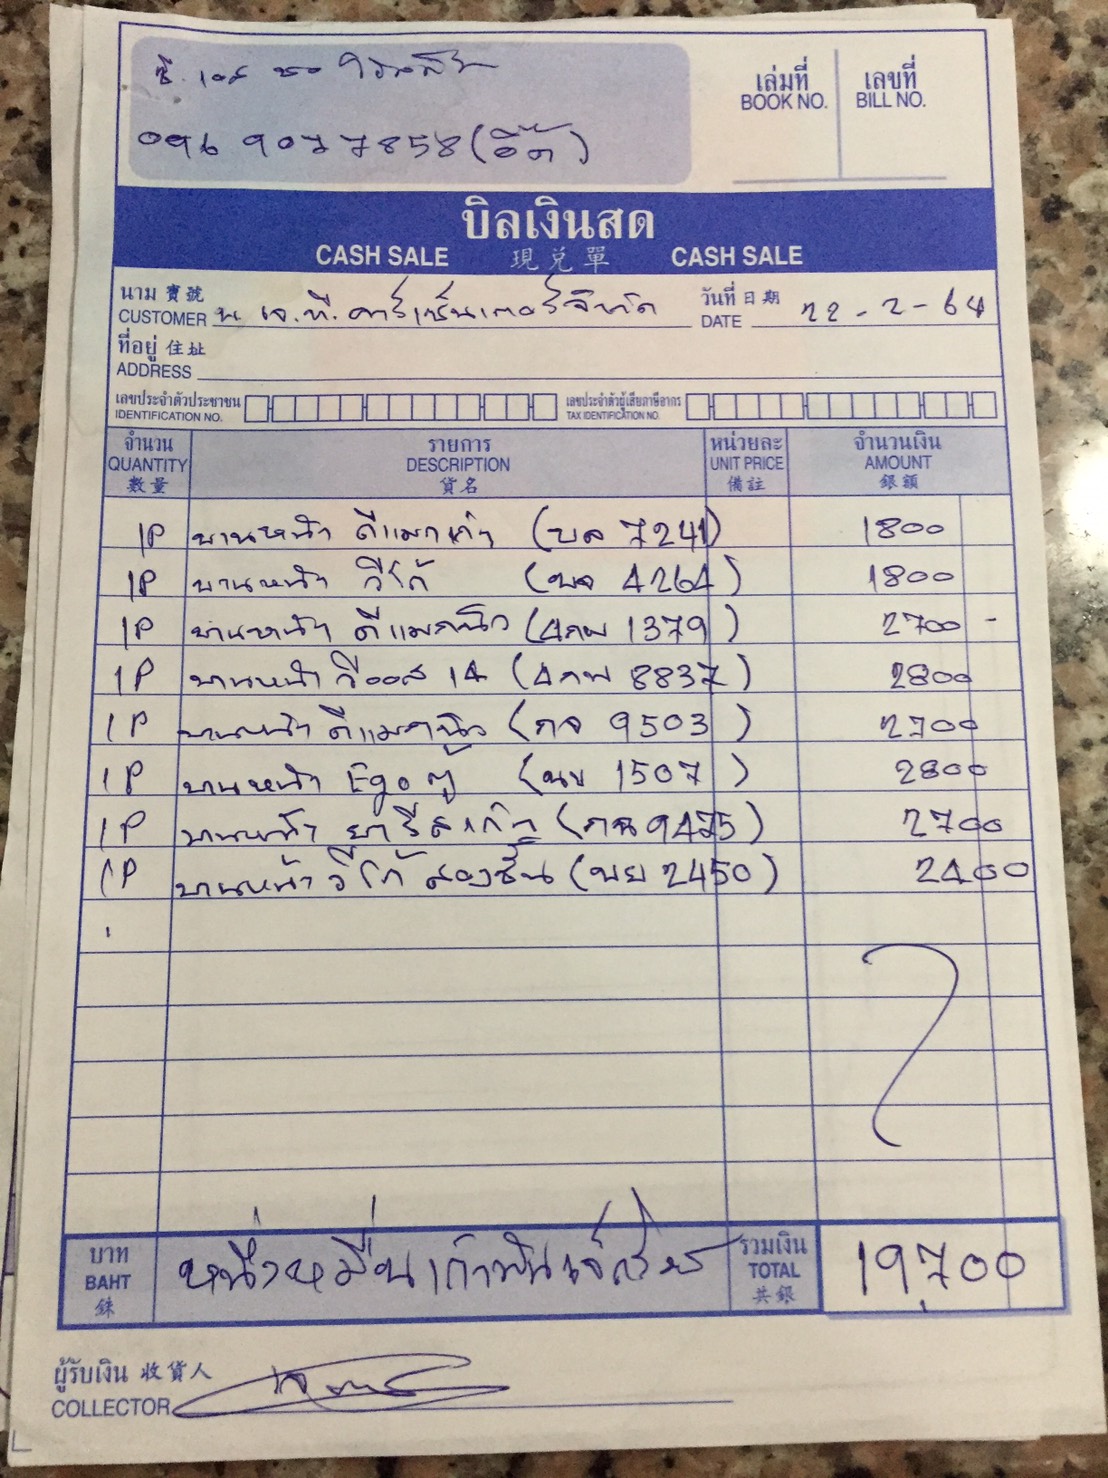 096 9077858 (อีต้)
เล่มที่ เลขที่
BOOK NO. BILL NO.
บิลเงินสด
CASH SALE 現兌單 CASH SALE
นาม 寶號 วันที่ 日期
CUSTOMER น เจ.ที.คาร์เซ็นเตอร์จำกัด DATE 22-2-64
ที่อยู่ 住址
ADDRESS
เลขประจำตัวประชาชน เลขประจำตัวผู้เสียภาษีอากร
IDENTIFICATION NO. TAX IDENTIFICATION NO.
จำนวน รายการ หน่วยละ จำนวนเงิน
QUANTITY DESCRIPTION UNIT PRICE AMOUNT
數量 貨名 備註 銀額
1P บานหน้า ดีแมกเก่า (บล 7241) 1800
1P บานหน้า วีโก้ (บจ 4264) 1800
1P บานหน้า ดีแมกนิว (4กพ 1379) 2700 -
1P บานหน้า วีออส 14 (4กพ 8837) 2800
1P บานหน้า ดีแมกนิว (กจ 9503) 2700
1P บานหน้า Ego ตู้ (นข 1507) 2800
1P บานหน้า ยารีสเก่า (กฉ 9475) 2700
1P บานหน้า วีโก้ สองชั้น (บย 2450) 2400
บาท หนึ่งหมื่นเก้าพันเจ็ดร้อย รวมเงิน 19,700
BAHT TOTAL
銖 共銀
ผู้รับเงิน 收貨人
COLLECTOR